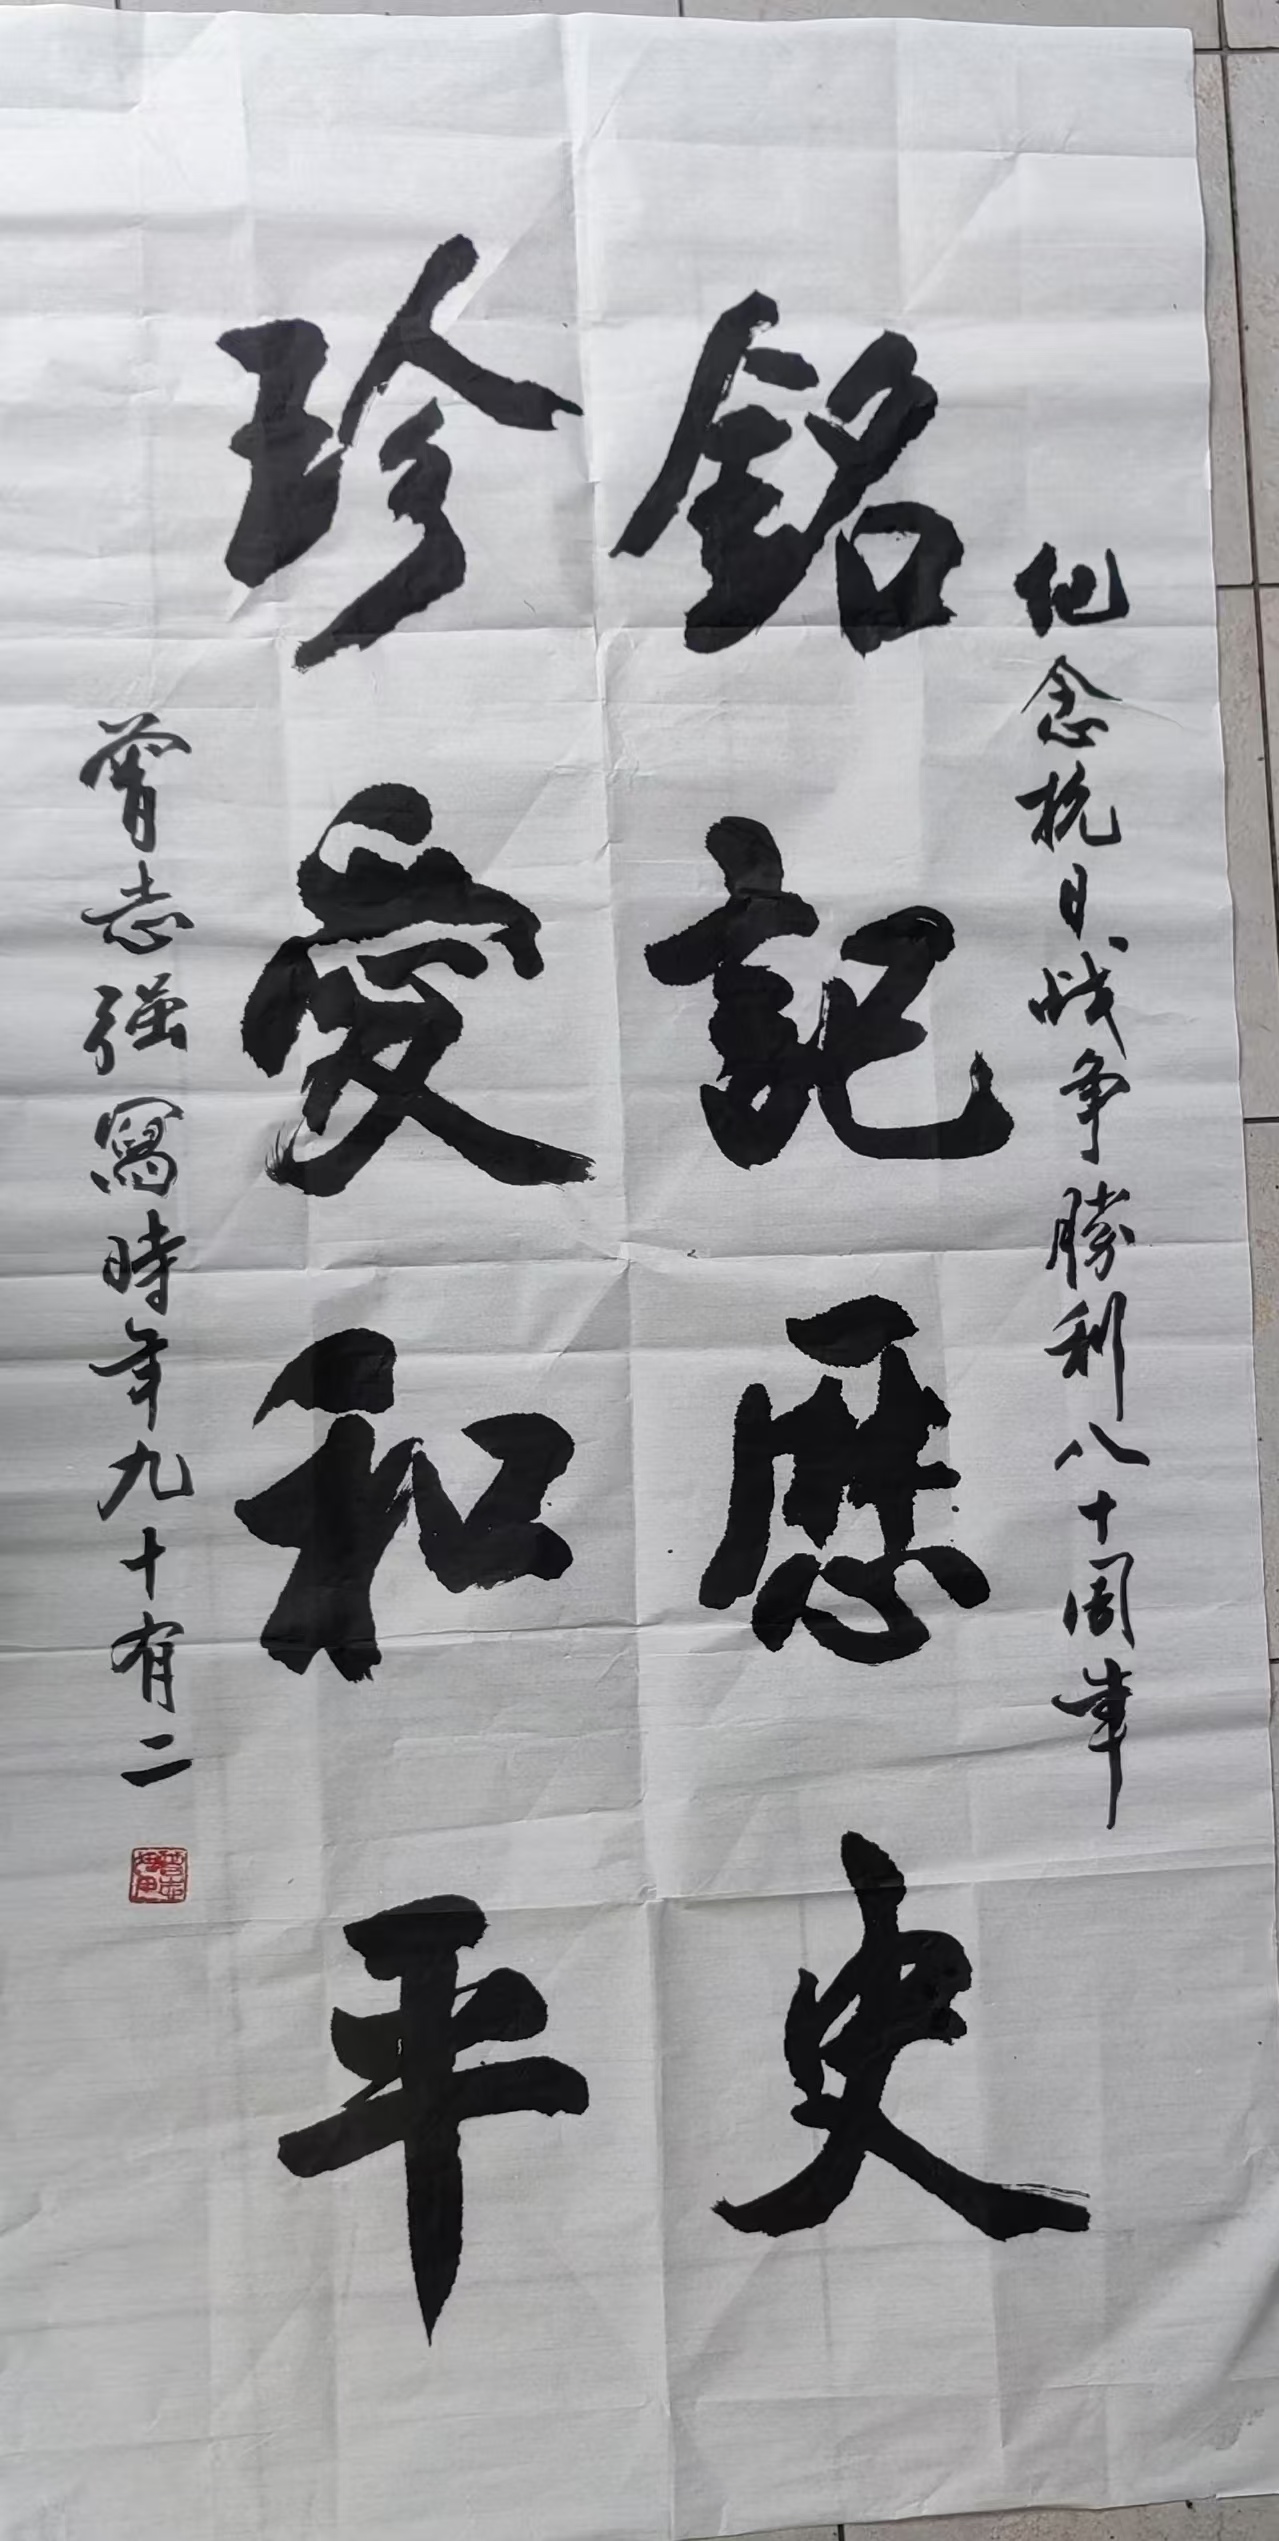 纪念抗日战争勝利八十周年
銘記歷史
珍愛和平
曾志强寫時年九十有二